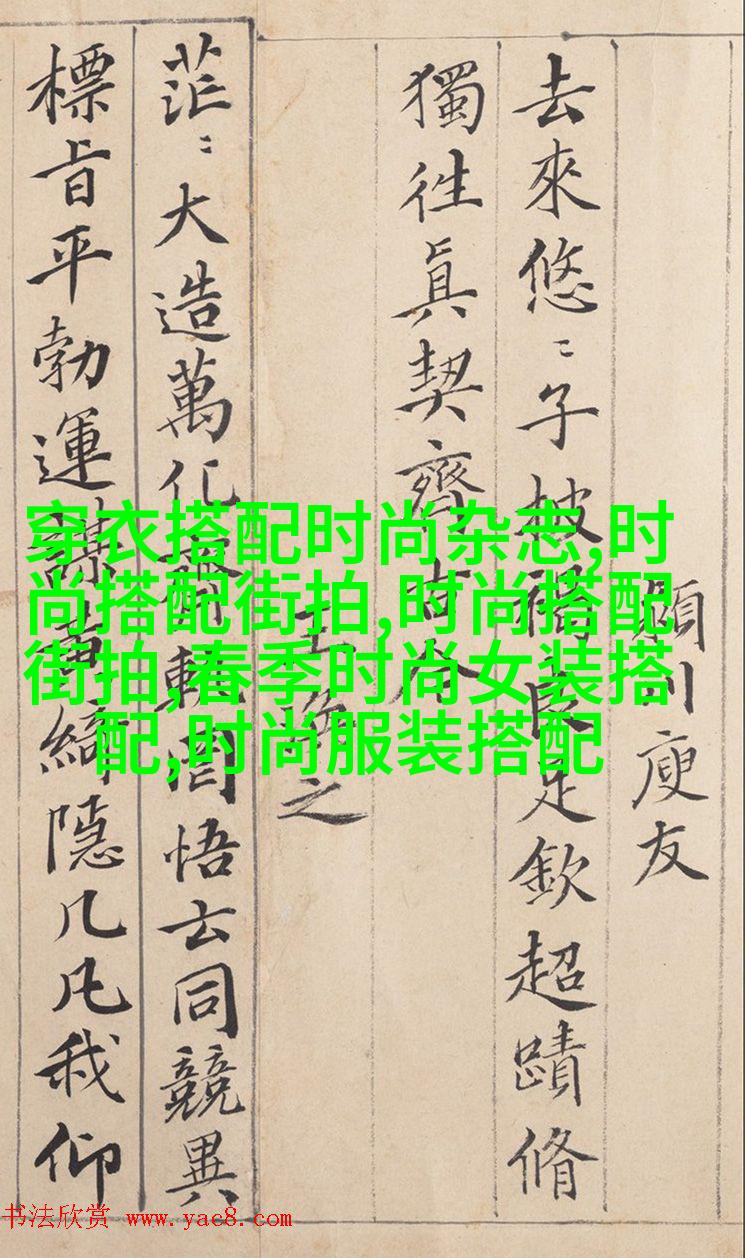 穿衣搭配时尚杂志,时
尚搭配街拍,时尚搭配
街拍,春季时尚女装搭
配,时尚服装搭配
川庾友
去來悠〻子披褐良足欽超蹟脩
獨往眞契齊古今
王之
茫〻大造萬化齊軌罔悟玄同競異
標旨平勃運謀綺隱几凡我仰
书法欣赏 www.yac8.com